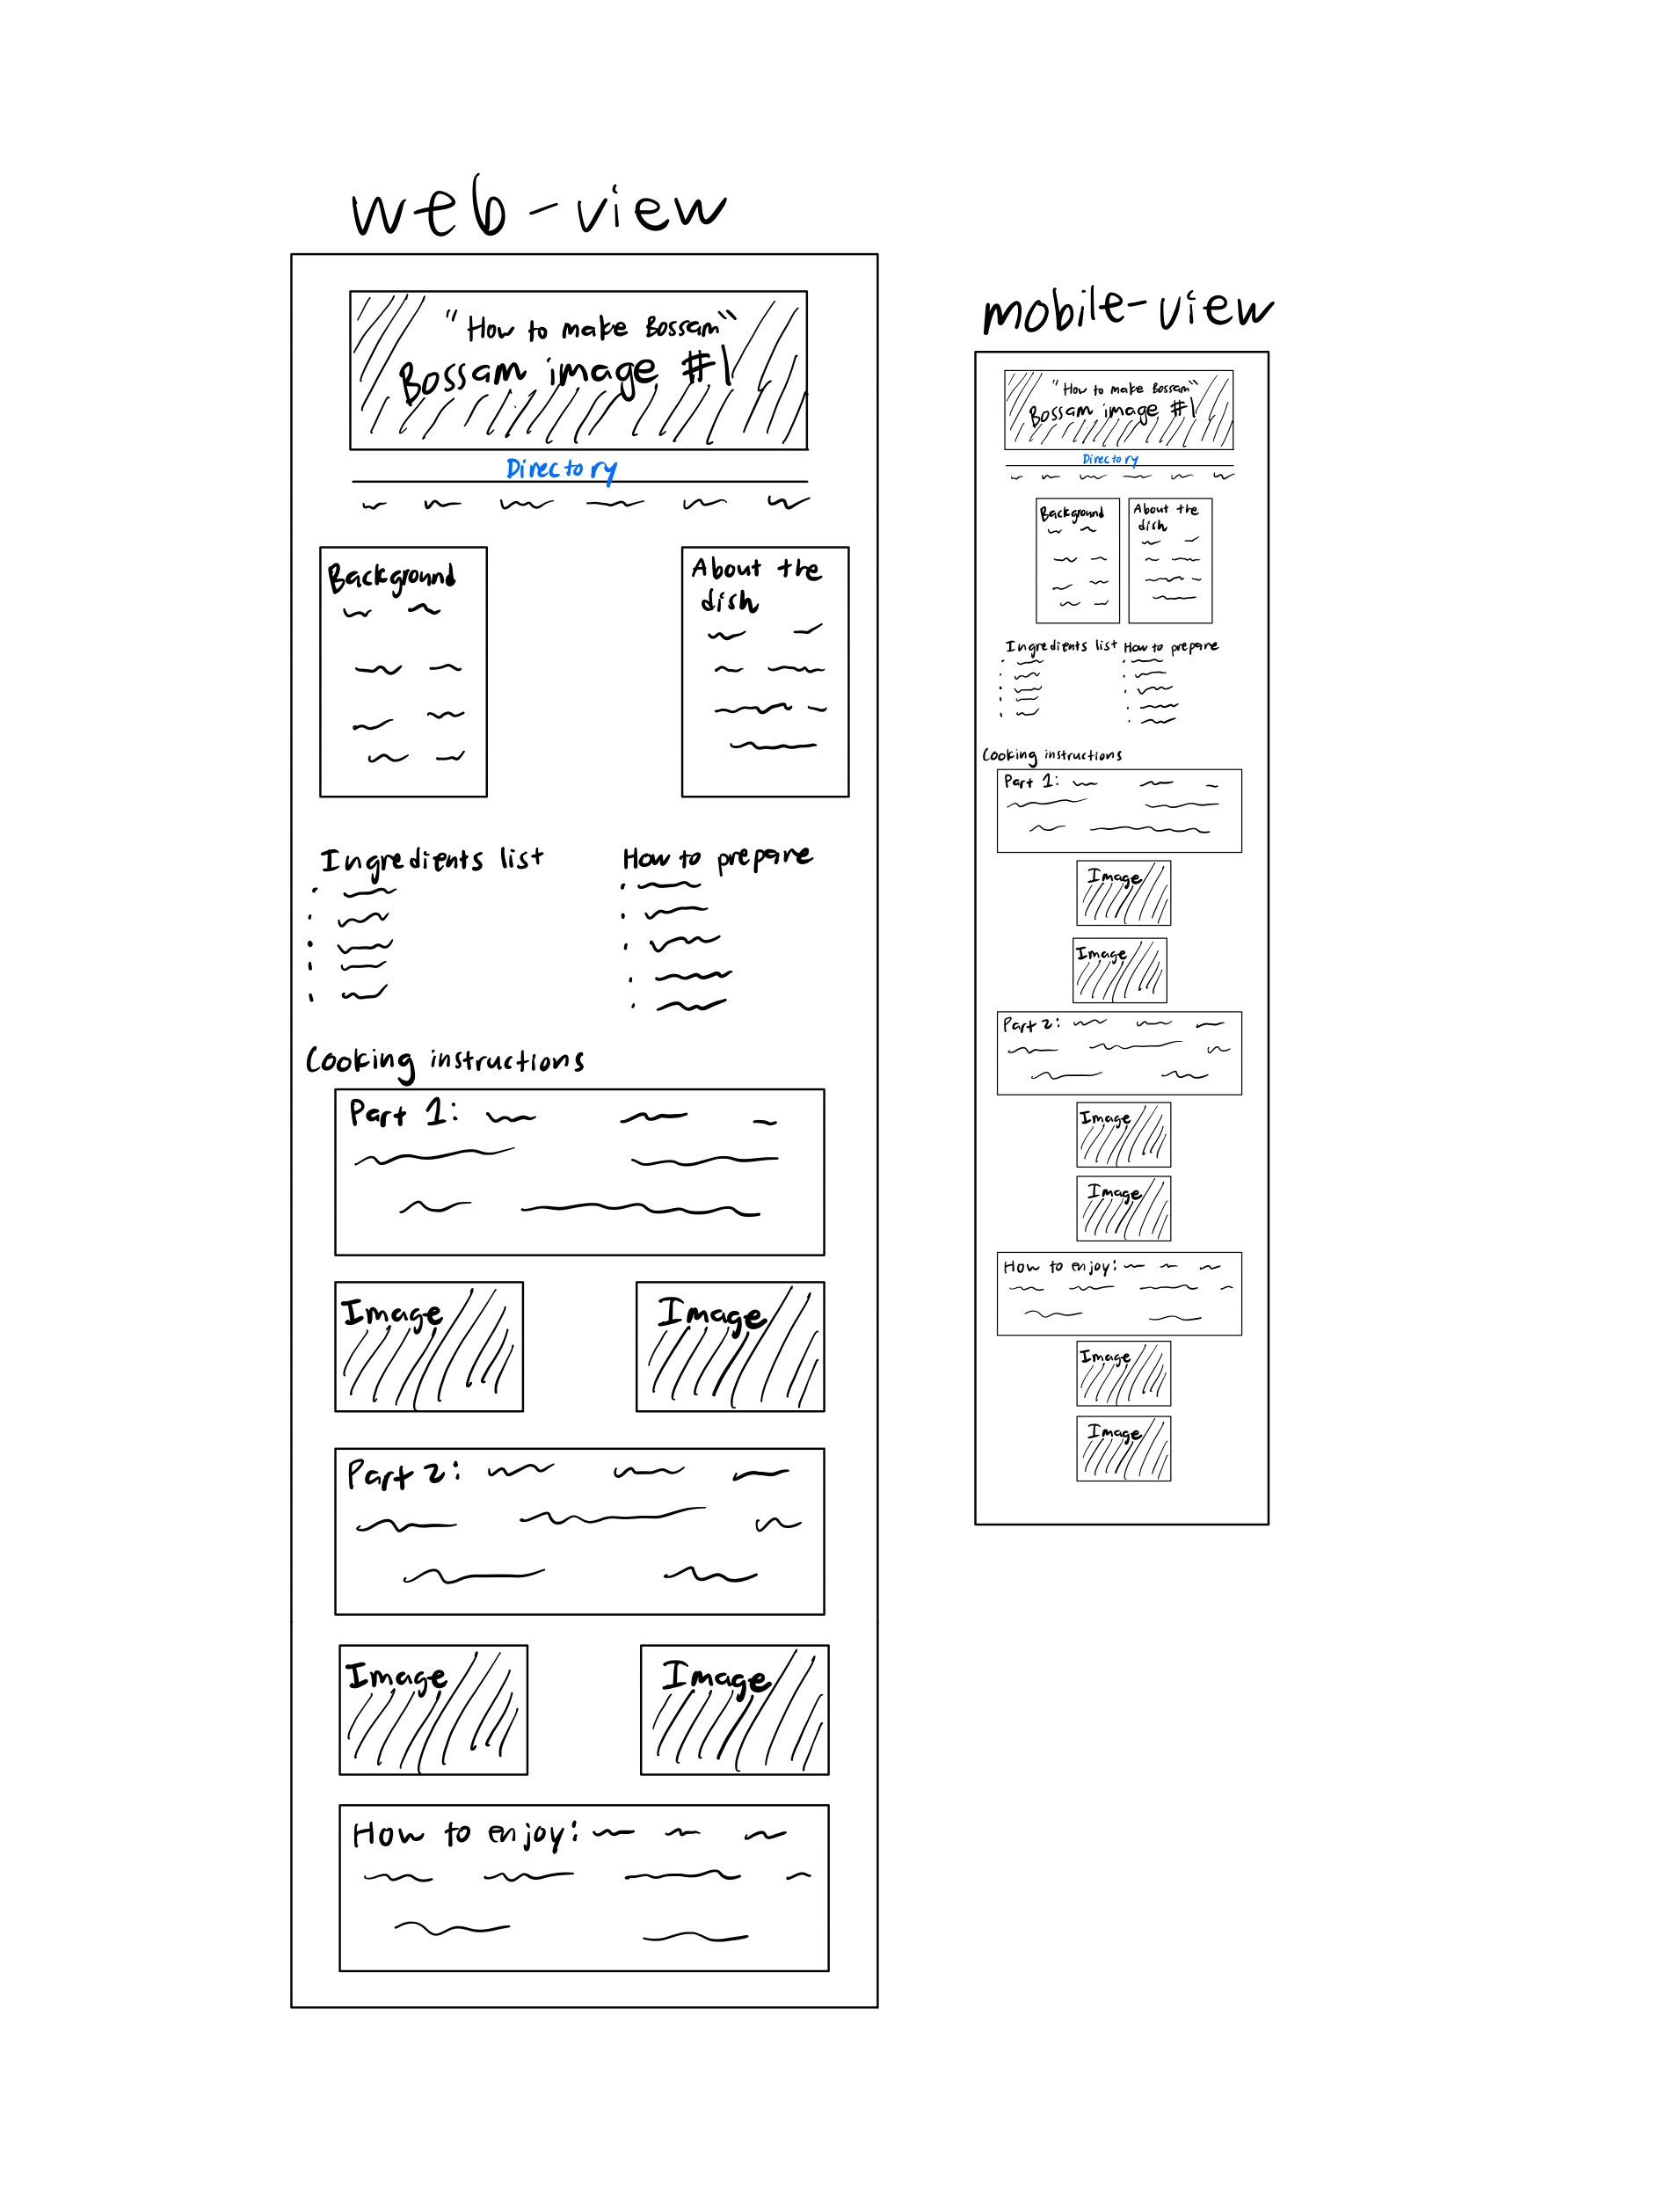 web-view
"How to make Bossam"
Bossam image #1
Directory
Background
About the
dish
Ingredients list
How to prepare
Cooking instructions
Part 1:
Image
Image
Part 2:
Image
Image
How to enjoy:
mobile-view
"How to make Bossam"
Bossam image #1
Directory
Background
About the
dish
Ingredients list
How to prepare
Cooking instructions
Part 1:
Image
Image
Part 2:
Image
Image
How to enjoy:
Image
Image